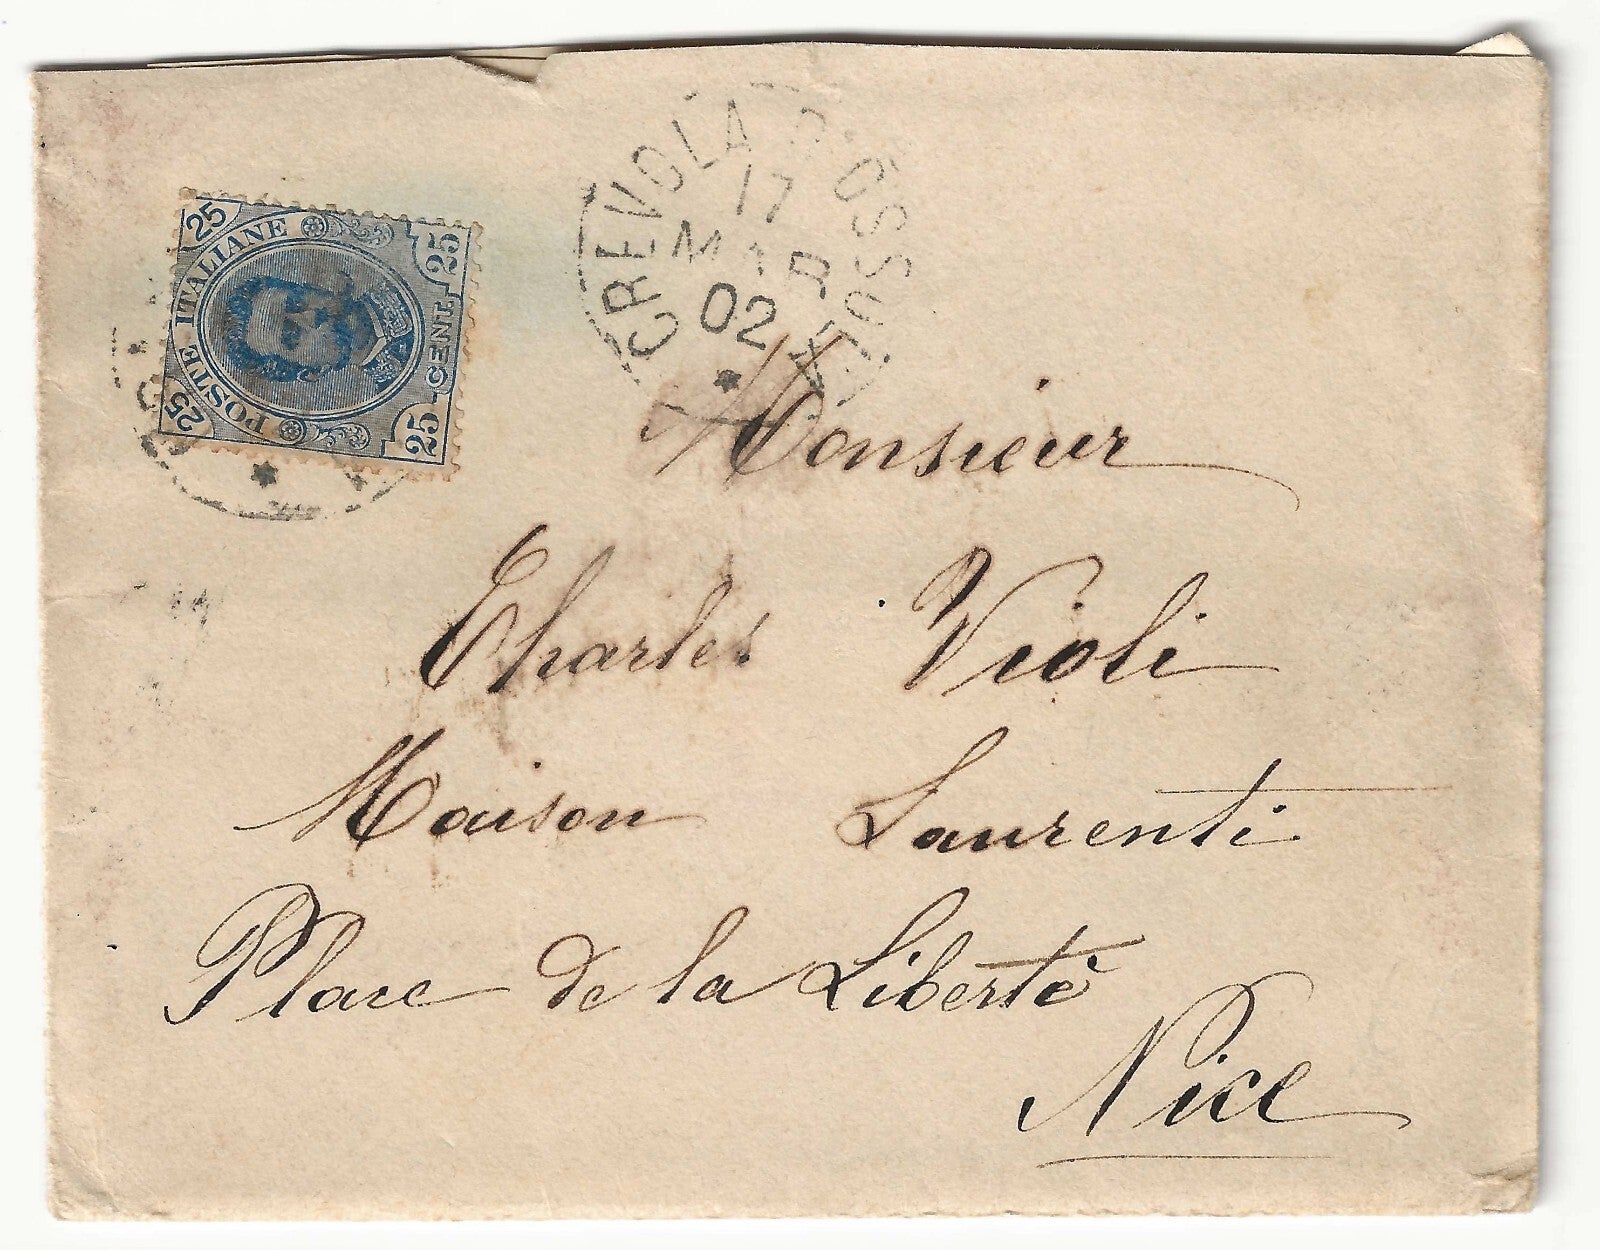 25
POSTE ITALIANE
25
CENT. 25
25
CREVOLA D'OSSOLA
17
MAR
02
Monsieur
Charles Violi
Maison Laurenti
Place de la Libertè
Nice